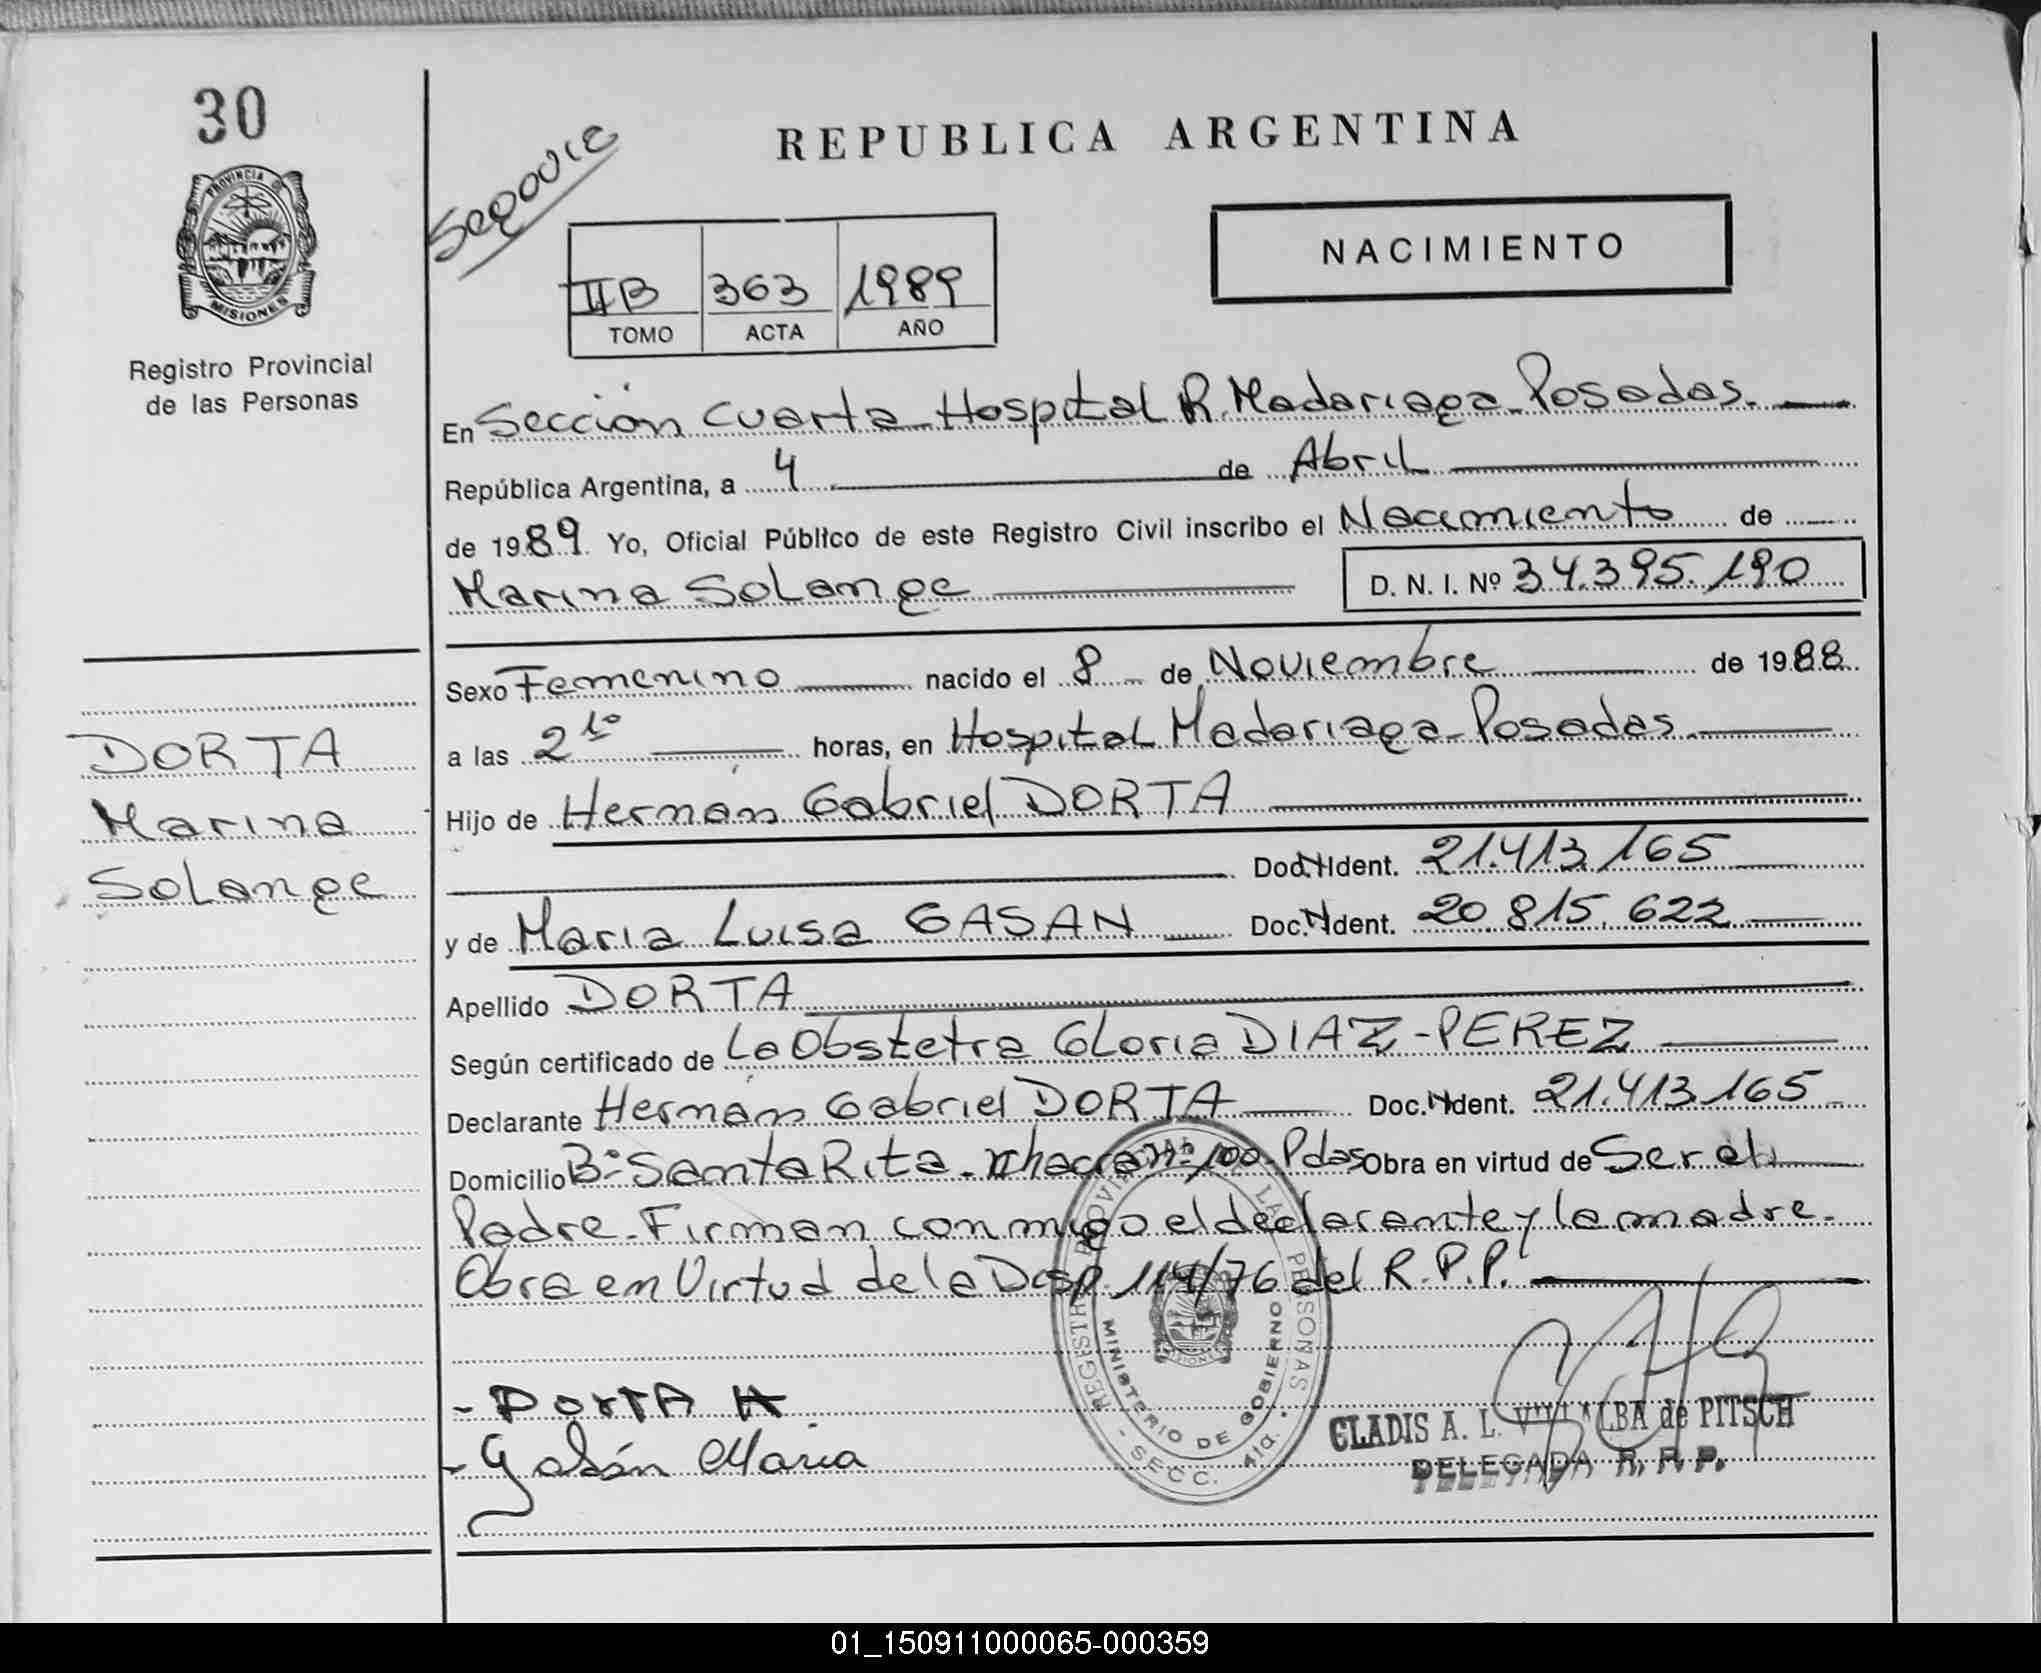 30
PROVINCIA DE
MISIONES
Registro Provincial
de las Personas
DORTA
Marina
Solange
Segovia
REPUBLICA ARGENTINA
IIB 363 1989
TOMO ACTA AÑO
NACIMIENTO
En Sección Cuarta Hospital R. Madariaga Posadas.
República Argentina, a 4 de Abril
de 1989. Yo, Oficial Público de este Registro Civil inscribo el Nacimiento de
Marina Solange D. N. I. Nº 34.395.190
Sexo Femenino nacido el 8 de Noviembre de 1988
a las 2 10 horas, en Hospital Madariaga Posadas
Hijo de Hernán Gabriel DORTA
Doc. Ident. 21.413.165
y de Maria Luisa GASAN Doc. Ident. 20.815.622
Apellido DORTA
Según certificado de La Obstetra Gloria DIAZ-PEREZ
Declarante Hernán Gabriel DORTA Doc. Ident. 21.413.165
Domicilio Bº Santa Rita chacra nº 100 Pdas Obra en virtud de Ser el
Padre. Firman conmigo el declarante y la madre.
Obra en Virtud de la Disp. 114/76 del R.P.P.
- DORTA H.
- Gasán Maria
REGISTRO PROVINCIAL DE LAS PERSONAS
MINISTERIO DE GOBIERNO
- SECC. 4ta. -
MISIONES
GLADIS A. L. VILLALBA de PITSCH
DELEGADA R. P. P.
01_150911000065-000359